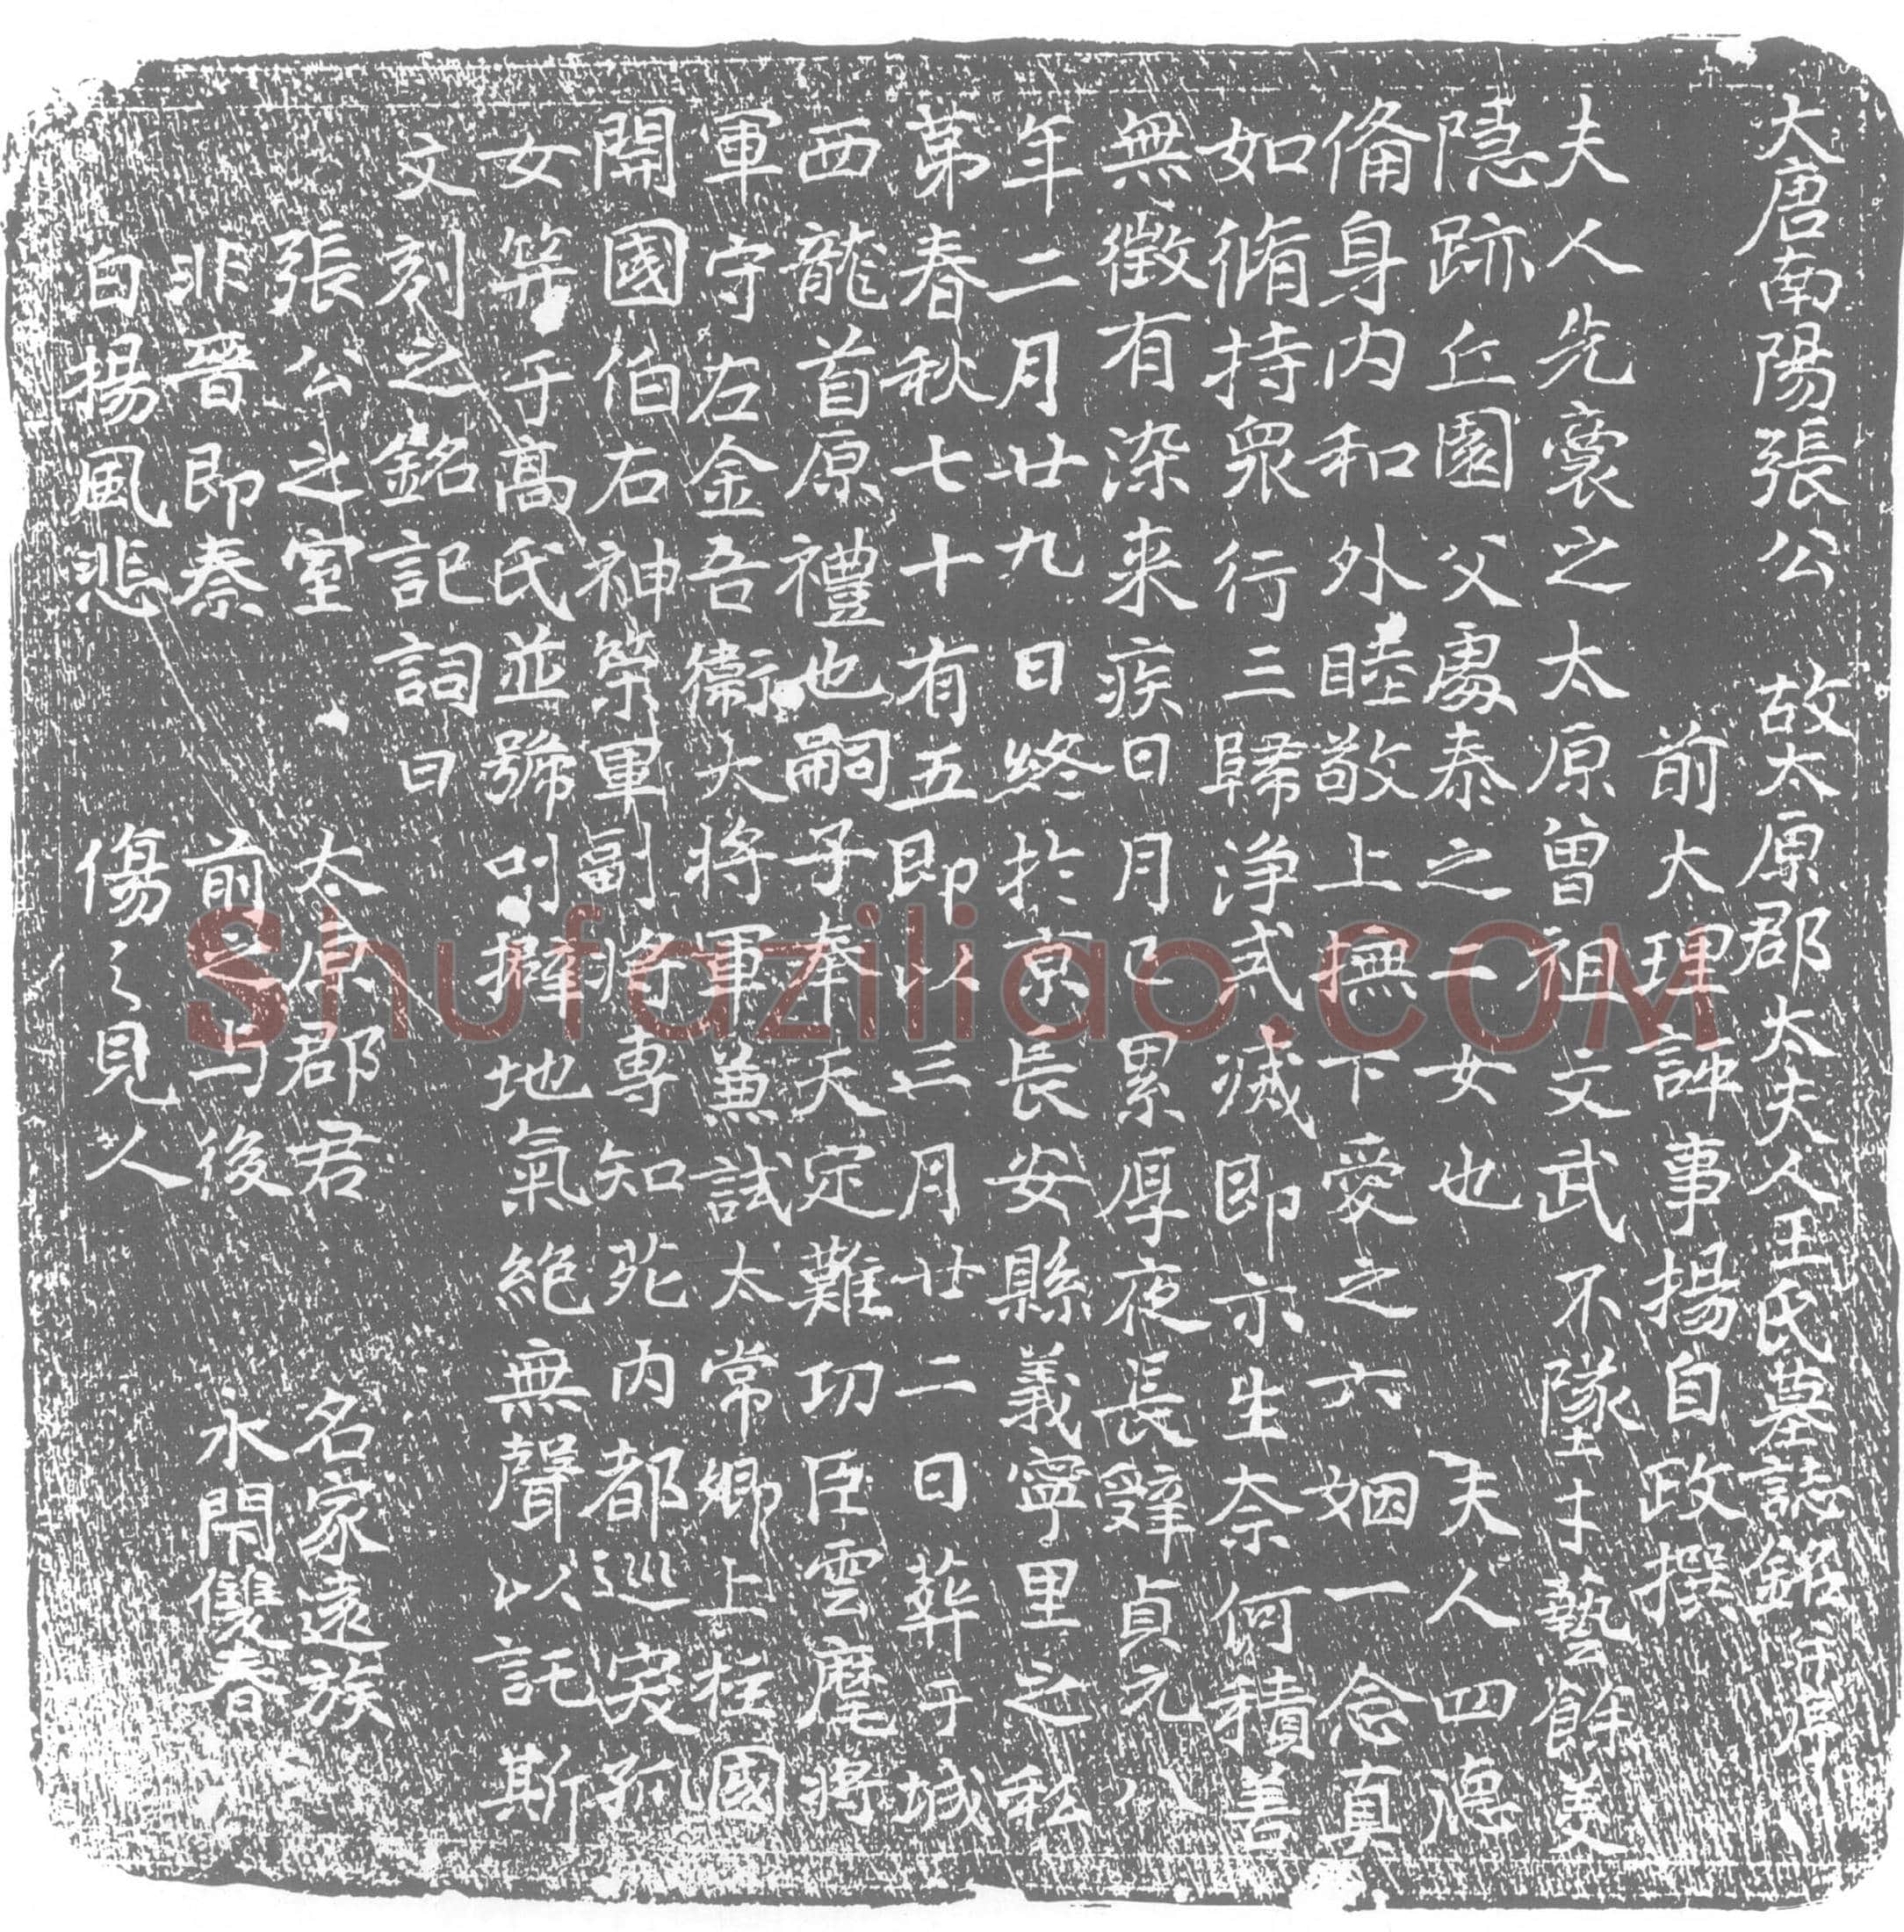 大唐南陽張公　故太原郡太夫人王氏墓誌銘并序
前大理評事揚自政撰
夫人先裔之太原曾祖文武不墜才藝餘美
隱跡丘園父處泰之二女也　夫人四德
俻身内和外睦敬上撫下愛之六姻一念真
如脩持衆行三歸淨式滅即示生奈何積善
無徵有染来疾日月已累厚夜長辤貞元八
年二月廿九日終於京長安縣義寧里之私
苐春秋七十有五即以三月廿二日葬于城
西龍首原禮也嗣子奉天定難功臣雲麾將
軍守左金吾衛大將軍兼試太常卿上柱國
開國伯右神策軍副將專知苑内都巡突孤
女等于高氏並號叫擗地氣絶無聲以託斯
文刻之銘記詞曰
張公之室　太原郡君　名家遠族
非晉即秦　前之与後　永閇雙春
白揚風悲　傷之見人
Shufaziliao.COM